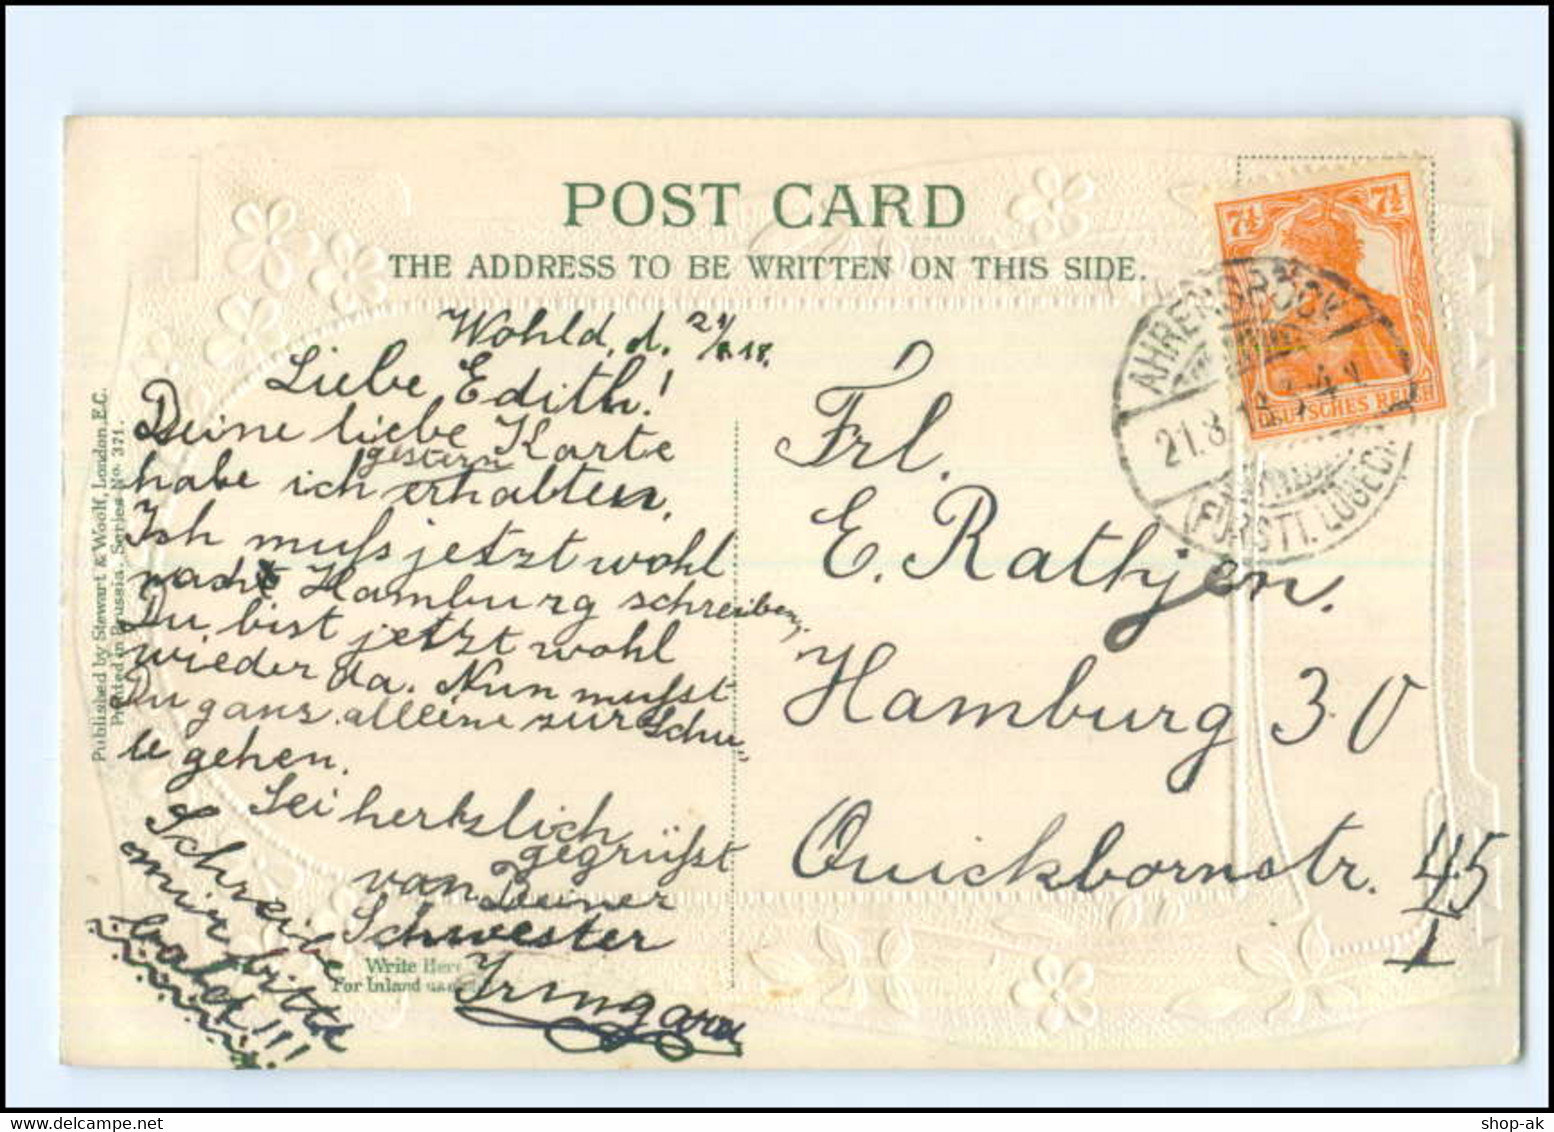 POST CARD
THE ADDRESS TO BE WRITTEN ON THIS SIDE.
7½ 7½
DEUTSCHES REICH
AHRENSBÖCK
21.8.18. 3-4 N
(FÜRSTT. LÜBECK)
Published by Stewart & Woolf, London, E.C.
Printed in Prussia. Series No. 371.
Wohld, d. 21/8.18.
Liebe Edith!
Deine liebe Karte
habe ich gestern erhalten.
Ich mußs jetzt wohl
nach Hamburg schreiben,
Du bist jetzt wohl
wieder da. Nun mußst
Du ganz alleine zur Schu-
le gehen.
Sei hertzlich
gegrüßst
von Deiner
Schwester
Irmgard
Schreibe
mir bitte
bald!!!
Write Here
For Inland
Frl.
E. Rathjen.
Hamburg 30
Quickbornstr. 45
I
shop-ak